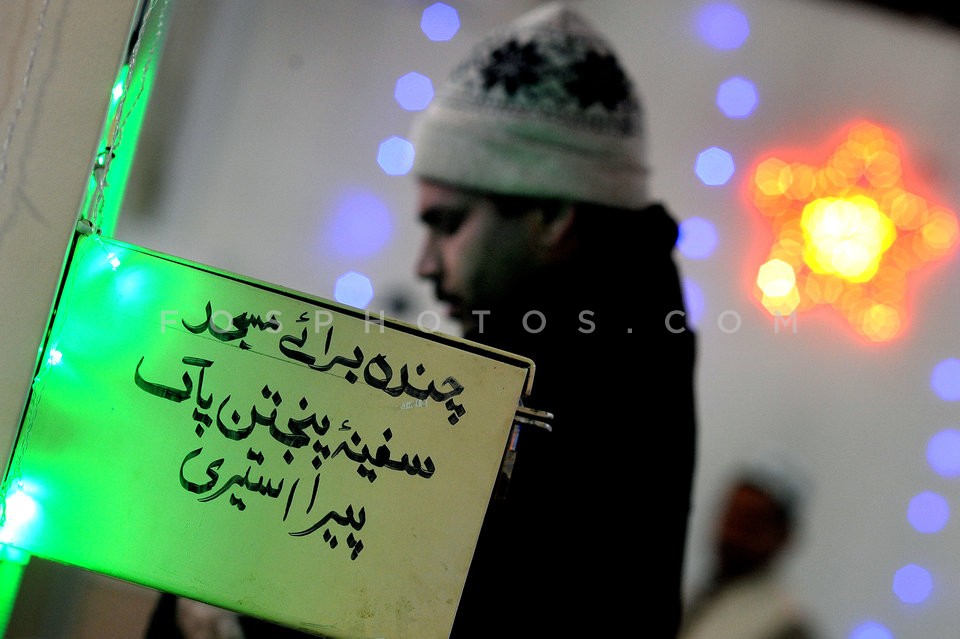 چندہ برائے مسجد
سفینۂ پنجتن پاک
پیرا استیری
FOSPHOTOS.COM